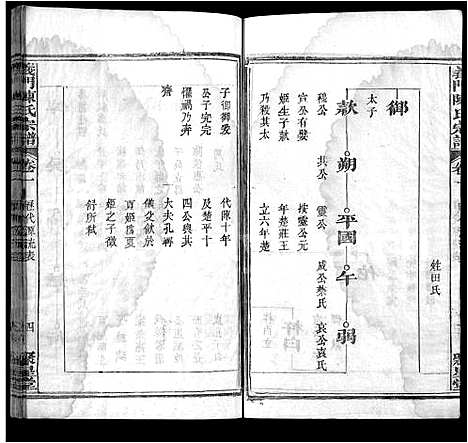 義門陳氏宗譜
卷一
姓田氏
御
太子
款
穆公
宣公嬖
姬生子
乃殺其太
子御御爱
公子完完
懼禍乃奔
齊
朔
共公
平國
靈公
靈公元
年楚莊王
立六年楚
代陳十年
及楚平十
四公與其
大夫孔寧
儀父歙於
夏姬
姬之子徵
舒所弒
午
成公
弱
哀公
義門陳氏宗譜
卷一
歷代源流表
四
聚星堂